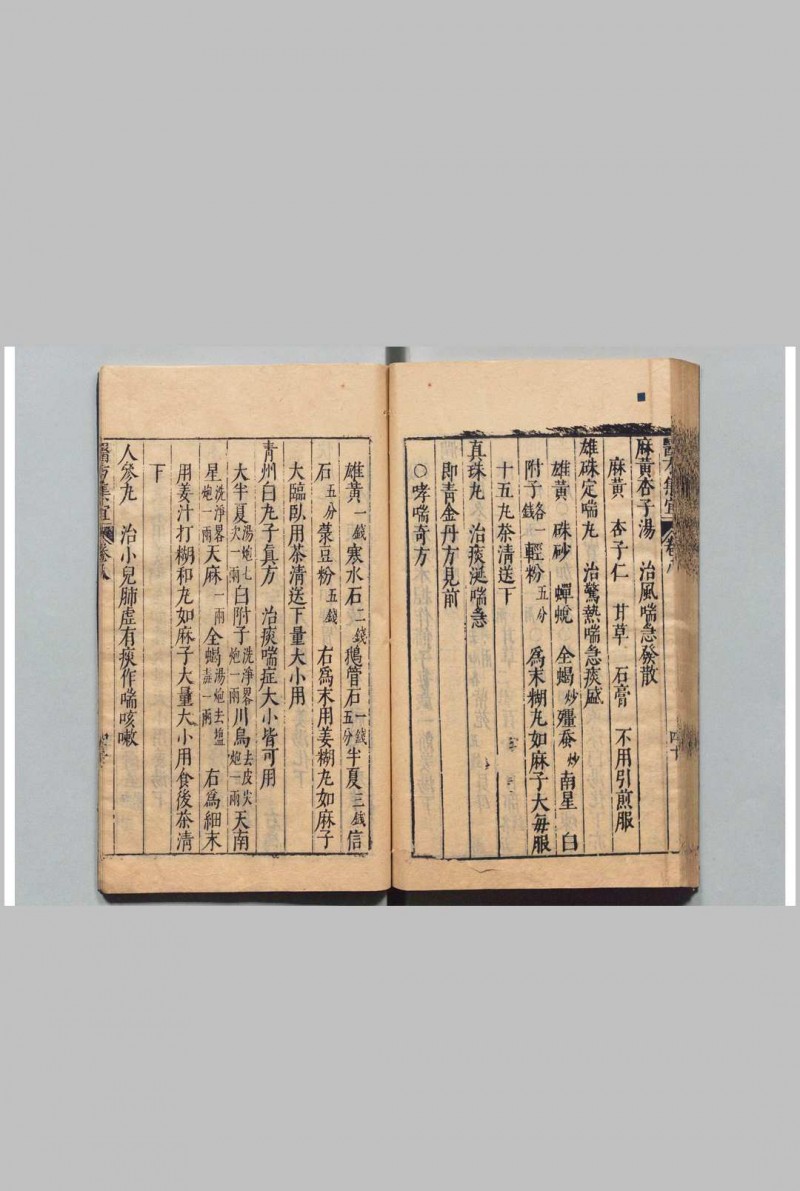 麻黄杏子湯　治風喘急發散
麻黄　杏子仁　甘草　石膏　不用引煎服
雄硃定喘丸　治驚熱喘急痰盛
雄黄　硃砂　蟬蛻　全蝎炒殭蚕炒南星　白
附子各一錢輕粉五分　為末糊丸如麻子大每服
十五丸茶清送下
真珠丸　治痰涎喘急
即青金丹方見前
○哮喘奇方
雄黄一錢寒水石二錢鵝管石一錢五分半夏三錢信
石五分菉豆粉五錢　右為末用姜糊丸如麻子
大臨臥用茶清送下量大小用
青州白丸子真方　治痰喘症大小皆可用
大半夏湯炮七次一兩白附子洗淨畧炮一兩川烏去皮尖炮一兩天南
星洗淨畧炮一兩天麻一兩全蝎湯炮去塩一兩右為細末
用姜汁打糊和丸如麻子大量大小用食後茶清
下
人參丸　治小兒肺虛有痰作喘咳嗽
醫方集宜　卷八